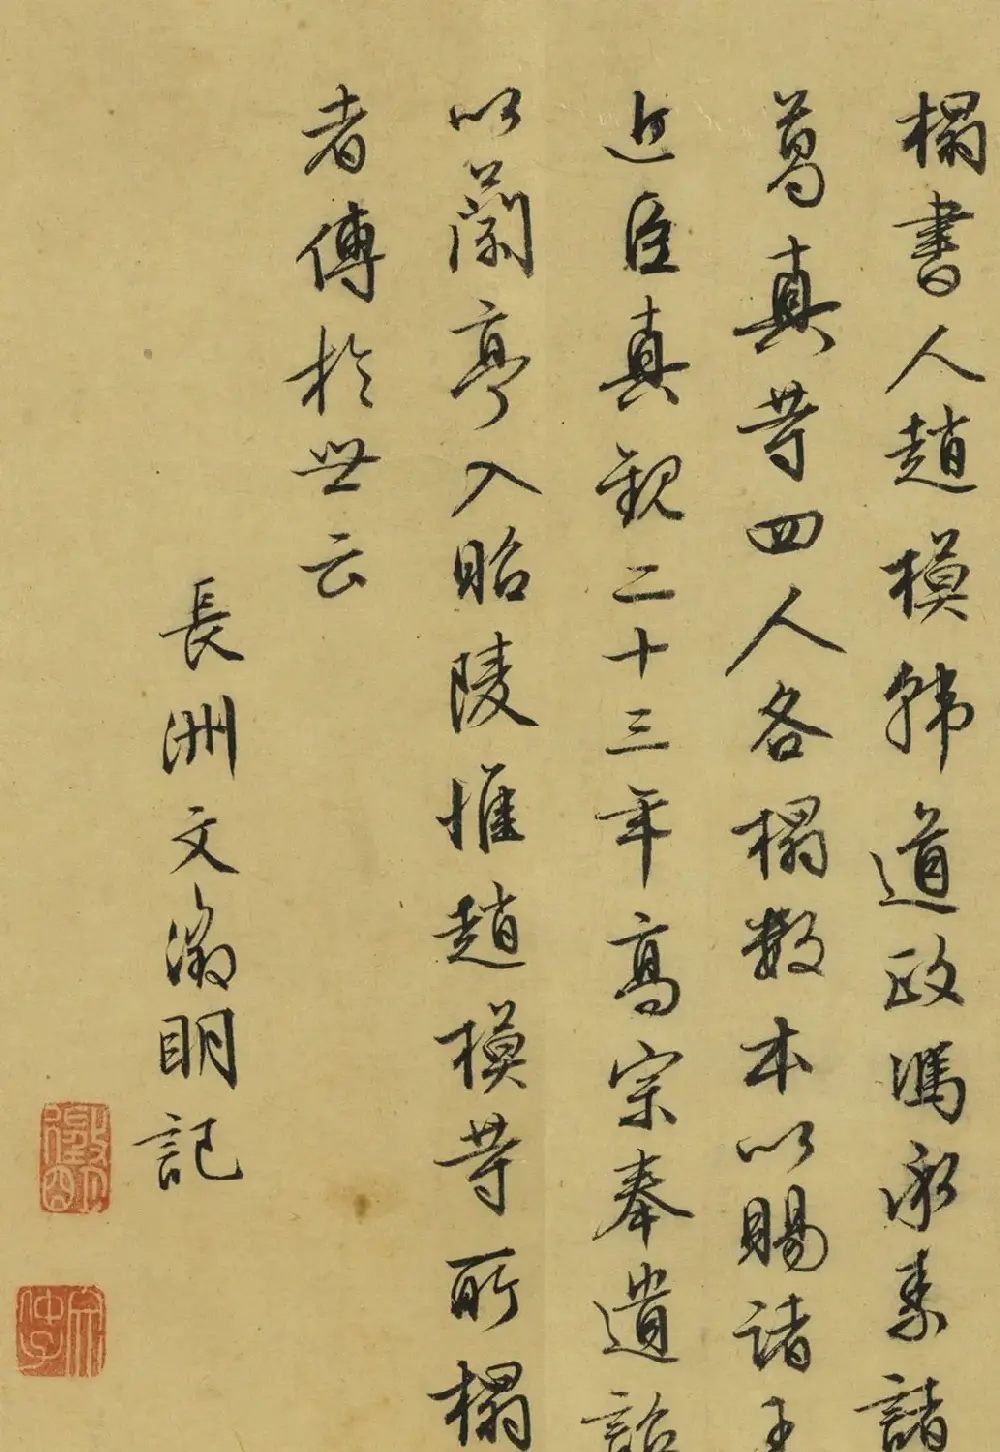 榻書人趙模韓道政馮承素諸
葛真等四人各榻數本以賜諸王
近臣真觀二十三年高宗奉遺詔
以蘭亭入昭陵惟趙模等所榻
者傳於世云
長洲文徵明記
徵明